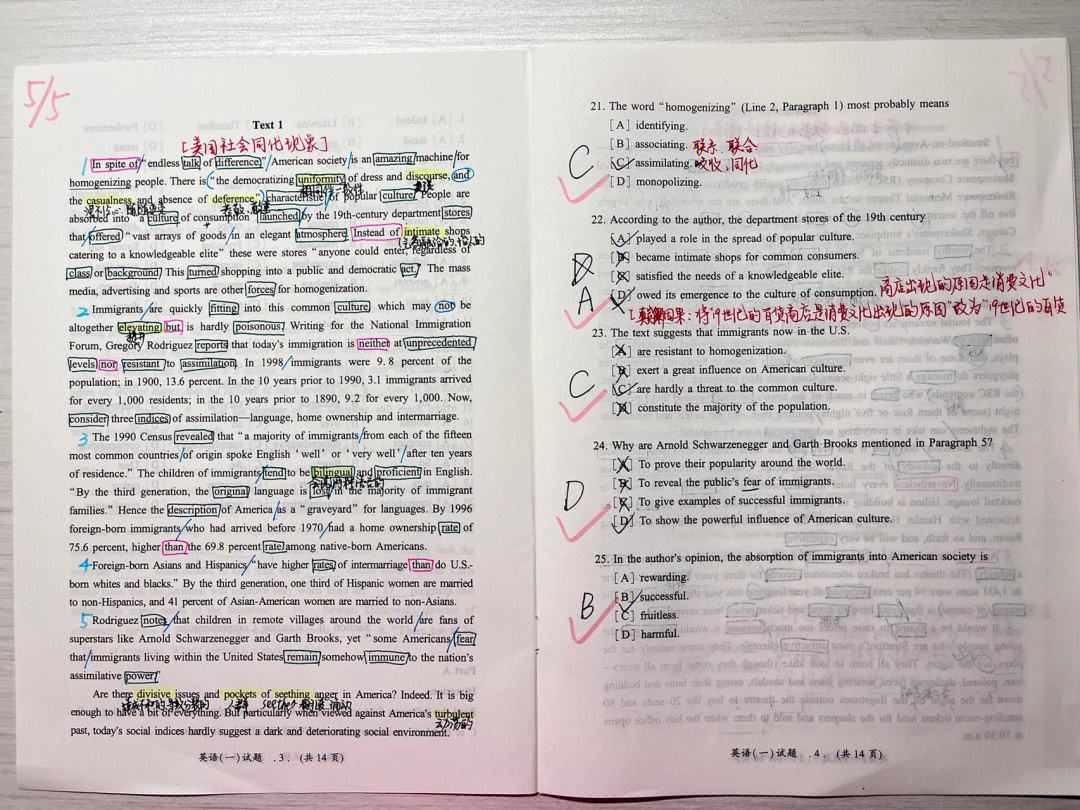 5/5
Text 1
[美国社会同化现象]
1 In spite of “endless talk of difference,” American society is an amazing machine for
homogenizing people. There is “the democratizing uniformity of dress and discourse, and
the casualness and absence of deference,” characteristic of popular culture. People are
absorbed into “a culture of consumption” launched by the 19th-century department stores
that offered “vast arrays of goods in an elegant atmosphere. Instead of intimate shops
catering to a knowledgeable elite” these were stores “anyone could enter, regardless of
class or background. This turned shopping into a public and democratic act.” The mass
media, advertising and sports are other forces for homogenization.
2 Immigrants are quickly fitting into this common culture, which may not be
altogether elevating but is hardly poisonous. Writing for the National Immigration
Forum, Gregory Rodriguez reports that today's immigration is neither at unprecedented
levels nor resistant to assimilation. In 1998 immigrants were 9.8 percent of the
population; in 1900, 13.6 percent. In the 10 years prior to 1990, 3.1 immigrants arrived
for every 1,000 residents; in the 10 years prior to 1890, 9.2 for every 1,000. Now,
consider three indices of assimilation—language, home ownership and intermarriage.
3 The 1990 Census revealed that “a majority of immigrants from each of the fifteen
most common countries of origin spoke English ‘well’ or ‘very well’ after ten years
of residence.” The children of immigrants tend to be bilingual and proficient in English.
“By the third generation, the original language is lost in the majority of immigrant
families.” Hence the description of America as a “graveyard” for languages. By 1996
foreign-born immigrants who had arrived before 1970 had a home ownership rate of
75.6 percent, higher than the 69.8 percent rate among native-born Americans.
4 Foreign-born Asians and Hispanics “have higher rates of intermarriage than do U.S.-
born whites and blacks.” By the third generation, one third of Hispanic women are married
to non-Hispanics, and 41 percent of Asian-American women are married to non-Asians.
5 Rodriguez notes that children in remote villages around the world are fans of
superstars like Arnold Schwarzenegger and Garth Brooks, yet “some Americans fear
that immigrants living within the United States remain somehow immune to the nation's
assimilative power.”
Are there divisive issues and pockets of seething anger in America? Indeed. It is big
人群 seethes 翻滚 涌动
enough to have a bit of everything. But particularly when viewed against America's turbulent
past, today's social indices hardly suggest a dark and deteriorating social environment.
英语(一)试题 .3. (共14页)
21. The word “homogenizing” (Line 2, Paragraph 1) most probably means
[A] identifying.
[B] associating. 联系、联合
C [C] assimilating. 吸收、同化
[D] monopolizing.
22. According to the author, the department stores of the 19th century
[A] played a role in the spread of popular culture.
[B] became intimate shops for common consumers.
[C] satisfied the needs of a knowledgeable elite.
A [D] owed its emergence to the culture of consumption. 商店出现的原因是消费文化
因果：将“19世纪的百货商店是消费文化出现的原因”改为“19世纪的百货
23. The text suggests that immigrants now in the U.S.
[A] are resistant to homogenization.
[B] exert a great influence on American culture.
C [C] are hardly a threat to the common culture.
[D] constitute the majority of the population.
24. Why are Arnold Schwarzenegger and Garth Brooks mentioned in Paragraph 5?
[A] To prove their popularity around the world.
[B] To reveal the public's fear of immigrants.
D [C] To give examples of successful immigrants.
[D] To show the powerful influence of American culture.
25. In the author's opinion, the absorption of immigrants into American society is
[A] rewarding.
B [B] successful.
[C] fruitless.
[D] harmful.
英语(一)试题 .4. (共14页)